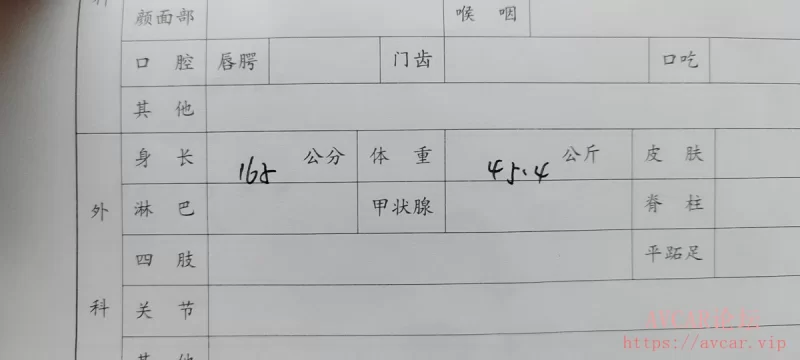 颜面部 喉咽
口腔 唇腭 门齿 口吃
其他
身长 165 公分 体重 45.4 公斤 皮肤
淋巴 甲状腺 脊柱
外
四肢 平跖足
科 关节
https://avcar.vip